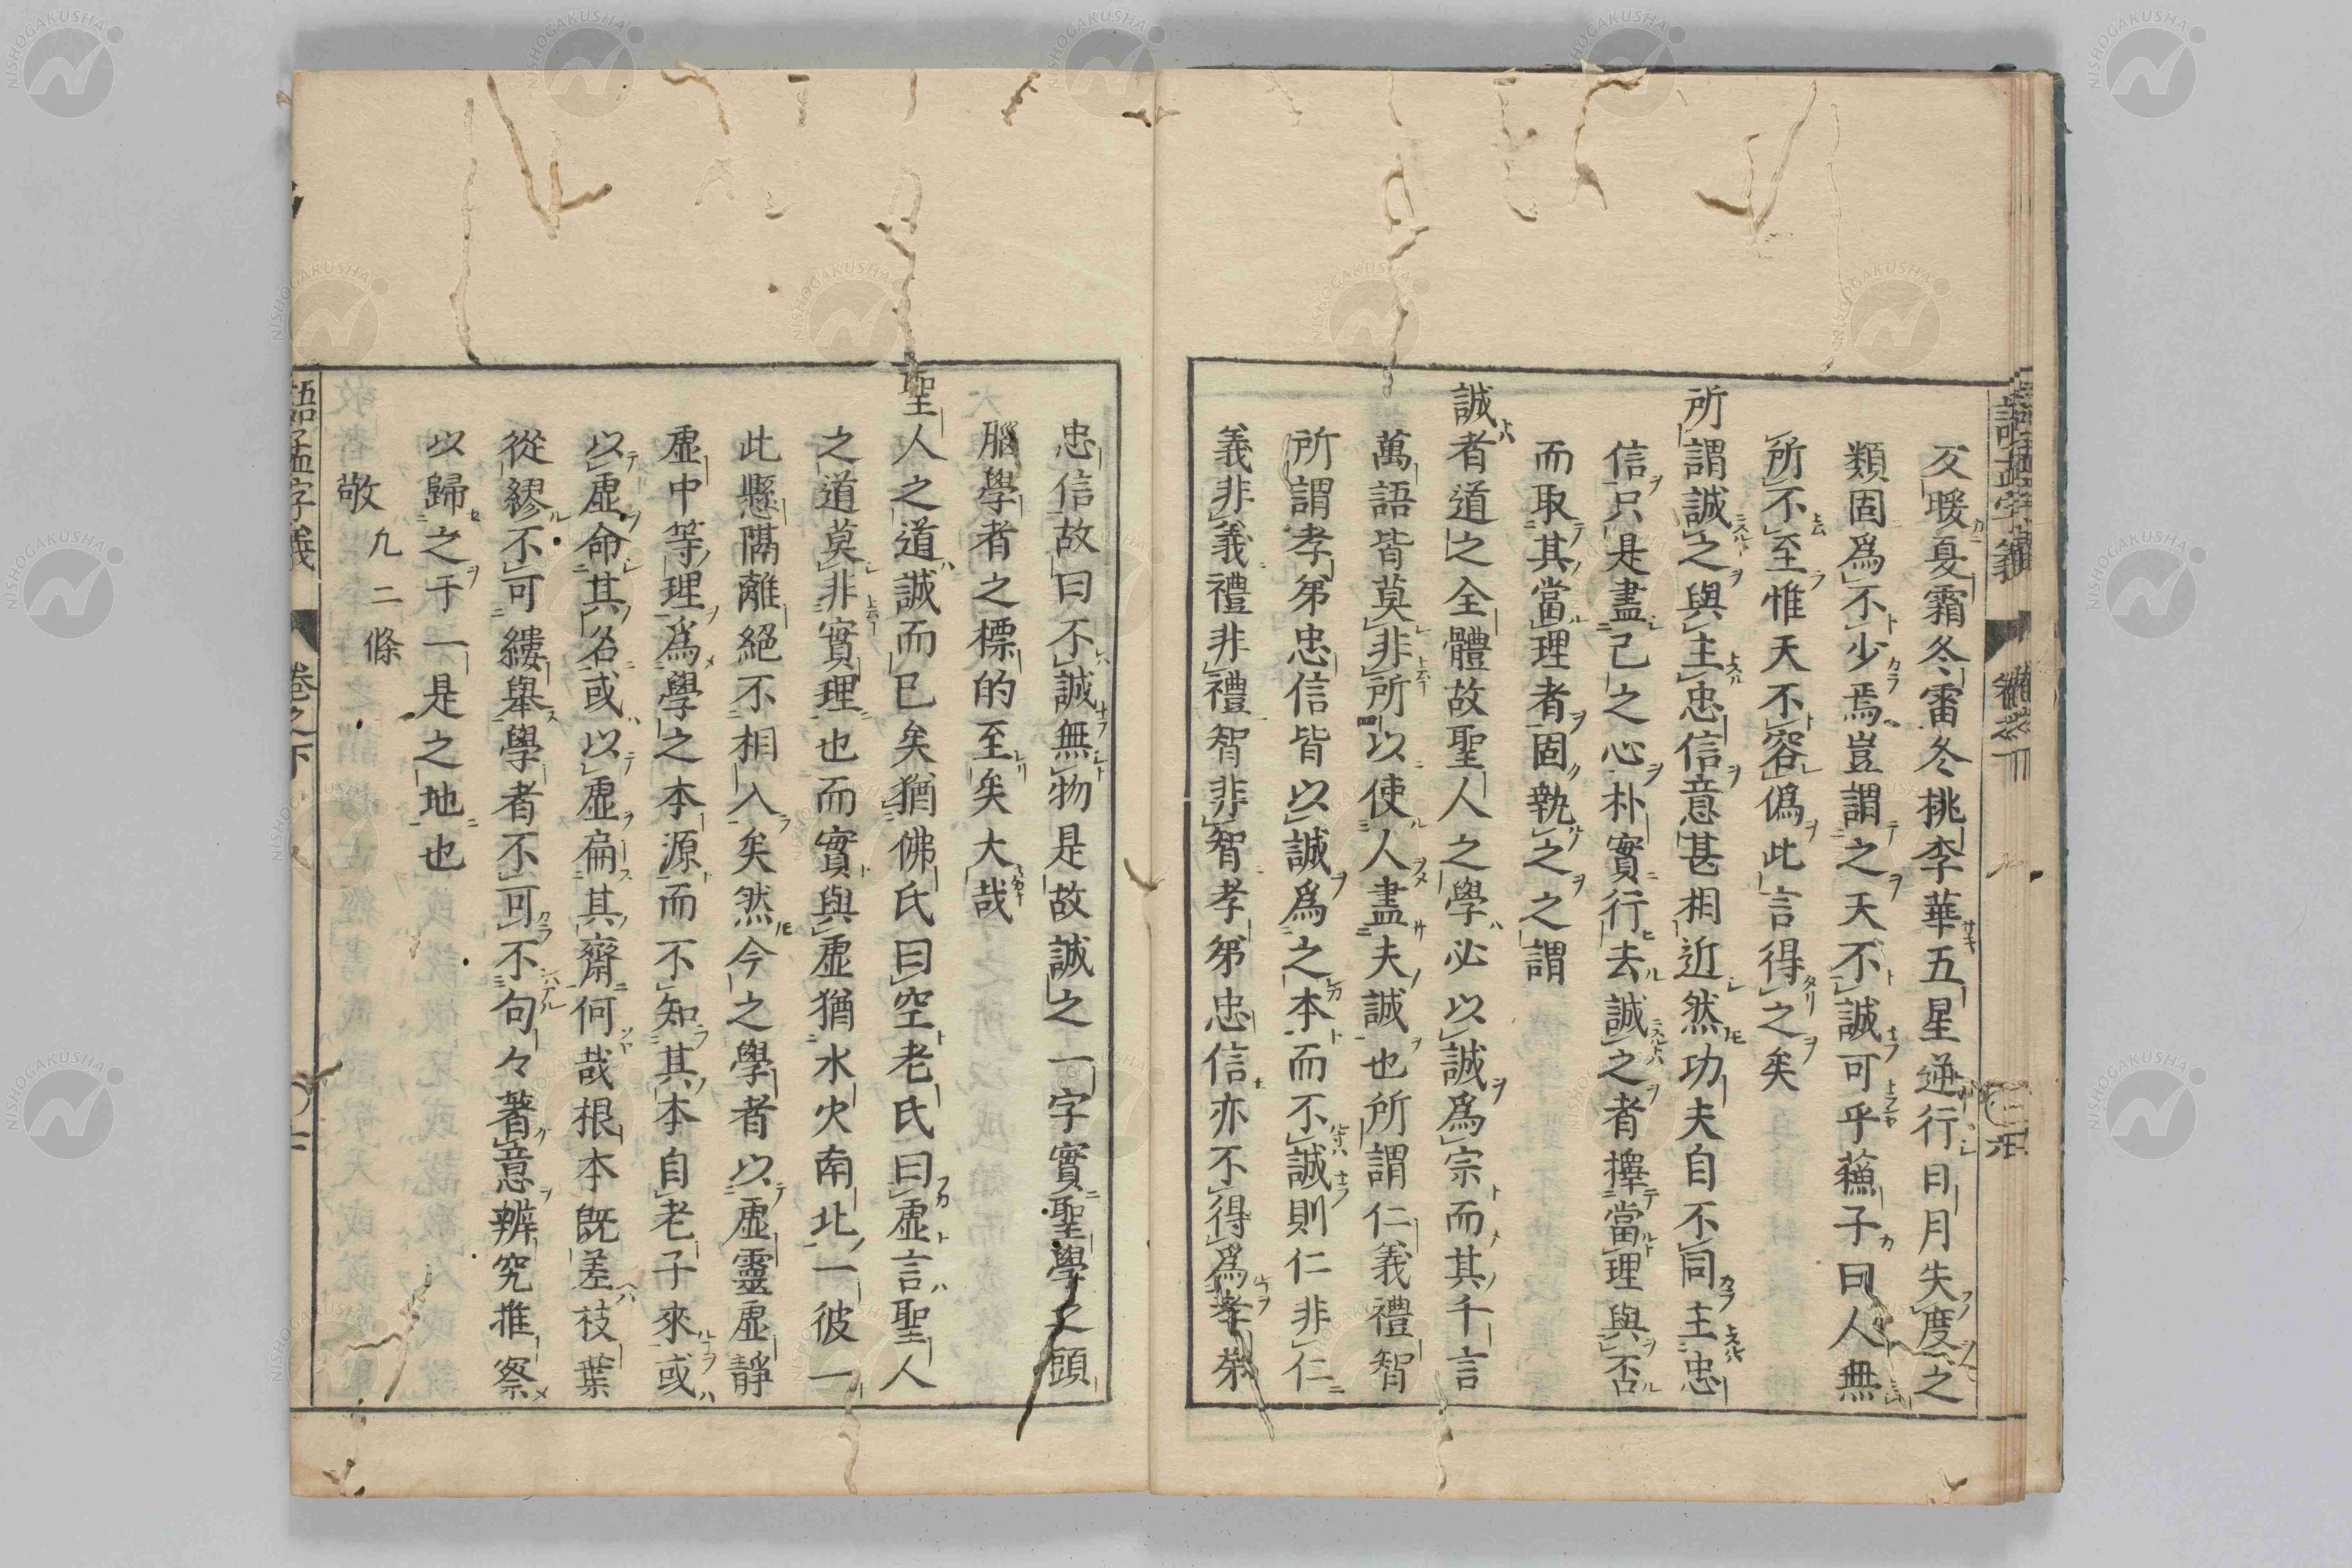 反暖夏霜冬雷冬桃李華五星逆行日月失度之
類固爲不少焉豈謂之天不誠可乎蘓子曰人無
所不至惟天不容僞此言得之矣
所謂誠之與主忠信意甚相近然功夫自不同主忠
信只是盡己之心朴實行去誠之者擇當理與否
而取其當理者固執之之謂
誠者道之全體故聖人之學必以誠爲宗而其千言
萬語皆莫非所以使人盡夫誠也所謂仁義禮智
所謂孝弟忠信皆以誠爲之本而不誠則仁非仁
義非義禮非禮智非智孝弟忠信亦不得爲孝弟
忠信故曰不誠無物是故誠之一字實聖學之頭
腦學者之標的至矣大哉
聖人之道誠而已矣猶佛氏曰空老氏曰虛言聖人
之道莫非實理也而實與虛猶水火南北一彼一
此懸隔離絕不相入矣然今之學者以虛靈虛靜
虛中等理爲學之本源而不知其本自老子來或
以虛命其名或以虛扁其齋何哉根本既差枝葉
從繆不可縷舉學者不可不句々著意辨究推察
以歸之于一是之地也
敬 凡二條
語孟字義 卷之下
NISHOGAKUSHA